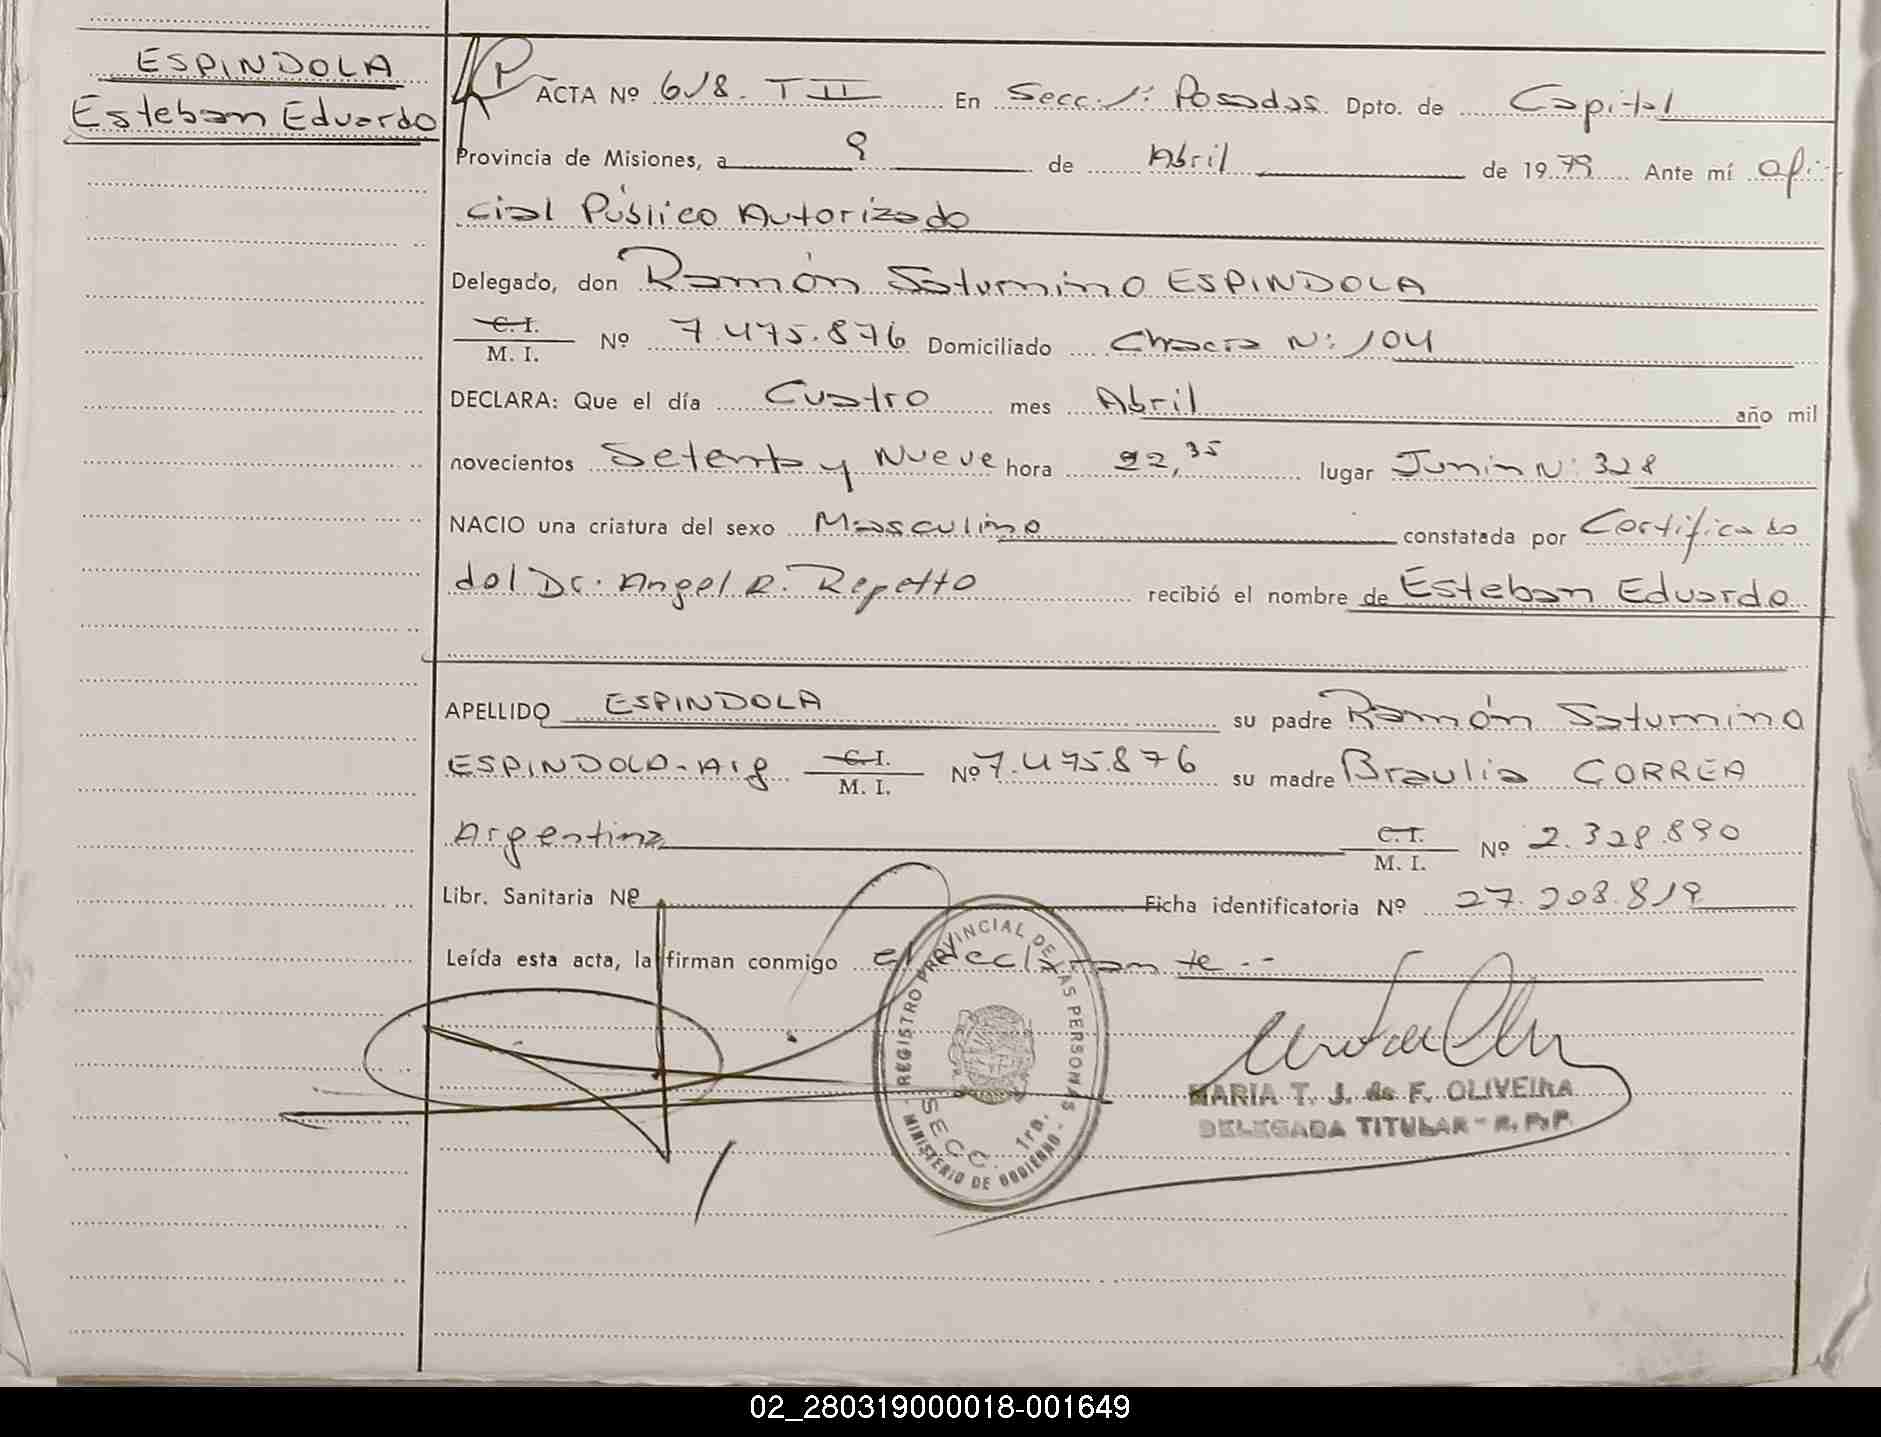 ESPINDOLA
Esteban Eduardo
ACTA Nº 618. T II En Secc. 1: Posadas Dpto. de Capital
Provincia de Misiones, a 9 de Abril de 1979 Ante mí Ofi-
cial Público Autorizado
Delegado, don Ramón Saturnino ESPINDOLA
C. I.
M. I. Nº 7.475.876 Domiciliado Chacra N: 104
DECLARA: Que el día Cuatro mes Abril año mil
novecientos Setenta y Nueve hora 22,35 lugar Junin N: 328
NACIO una criatura del sexo Masculino constatada por Certificado
del Dr. Angel R. Repetto recibió el nombre de Esteban Eduardo
APELLIDO ESPINDOLA su padre Ramón Saturnino
ESPINDOLA - Arg C. I.
M. I. Nº 7.475.876 su madre Braulia CORREA
Argentina C. I.
M. I. Nº 2.328.890
Libr. Sanitaria Nº Ficha identificatoria Nº 27.208.819
Leída esta acta, la firman conmigo el declarante.--
REGISTRO PROVINCIAL DE LAS PERSONAS
SECC. 1ra.
MINISTERIO DE GOBIERNO
MARIA T. J. de F. OLIVEIRA
DELEGADA TITULAR - R. P. P.
02_280319000018-001649